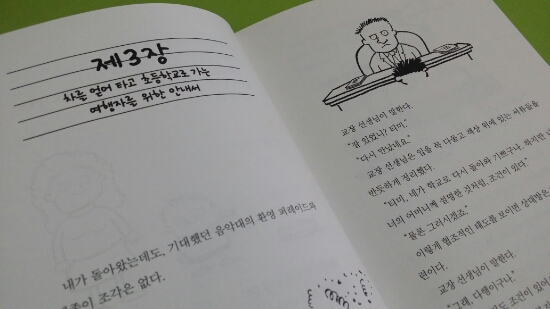 제3장
차를 얻어 타고 초등학교로 가는
여행자를 위한 안내서
내가 돌아왔는데도, 기대했던 음악대의 환영 퍼레이드와
조각은 없다.
교장 선생님이 말한다.
"잘 있었니? 티미."
"다시 만났네요."
교장 선생님은 입을 꾹 다물고 책상 위에 있는 서류들을
반듯하게 정리했다.
"티미, 네가 학교로 다시 돌아와 기쁘구나. 하지만
너의 어머니께 설명한 것처럼, 조건이 있다."
"물론 그러시겠죠."
이렇게 협조적인 태도를 보이면 상대방은
련이다.
교장 선생님이 말한다.
"그래, 다행이구나."
도 조건이 있어